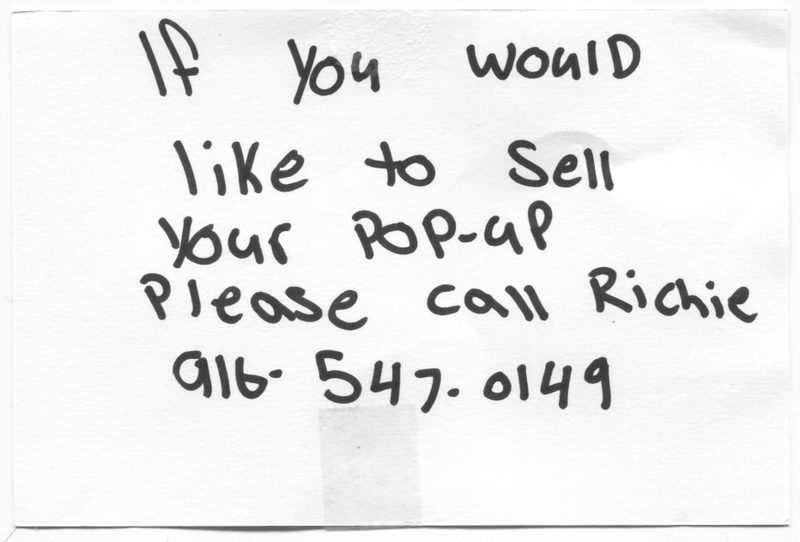 If you would
like to sell
your POP-UP
Please call Richie
916-547-0149